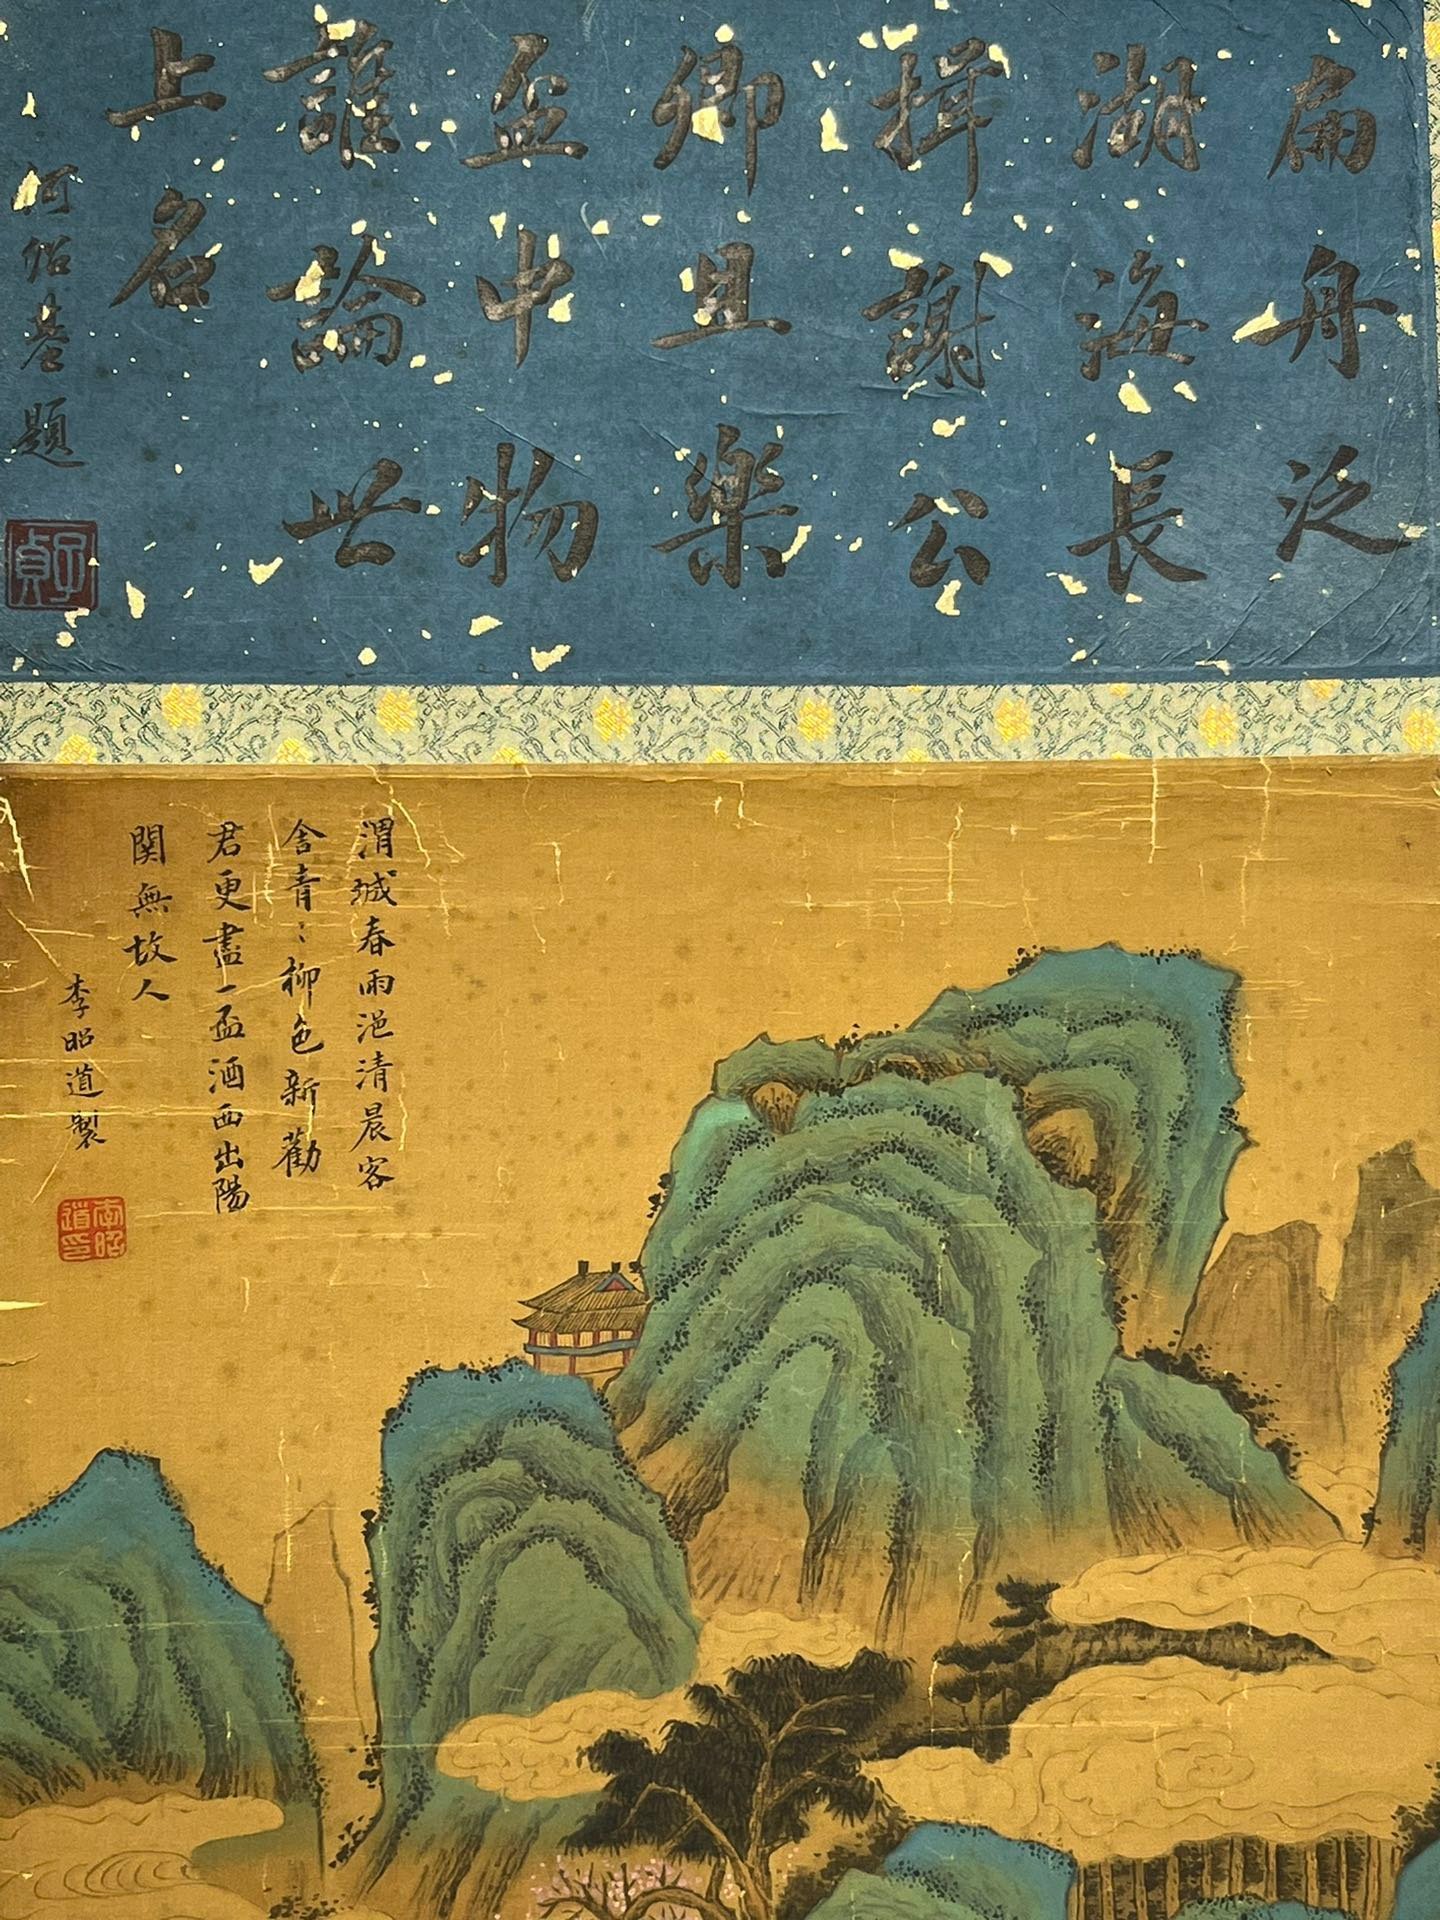 扁舟泛
湖海長
揖謝公
卿且樂
盃中物
誰論世
上名
何紹基題
子貞
渭城春雨浥清晨客
舍青〻柳色新勸
君更盡一盃酒西出陽
関無故人
李昭道製
李昭道印